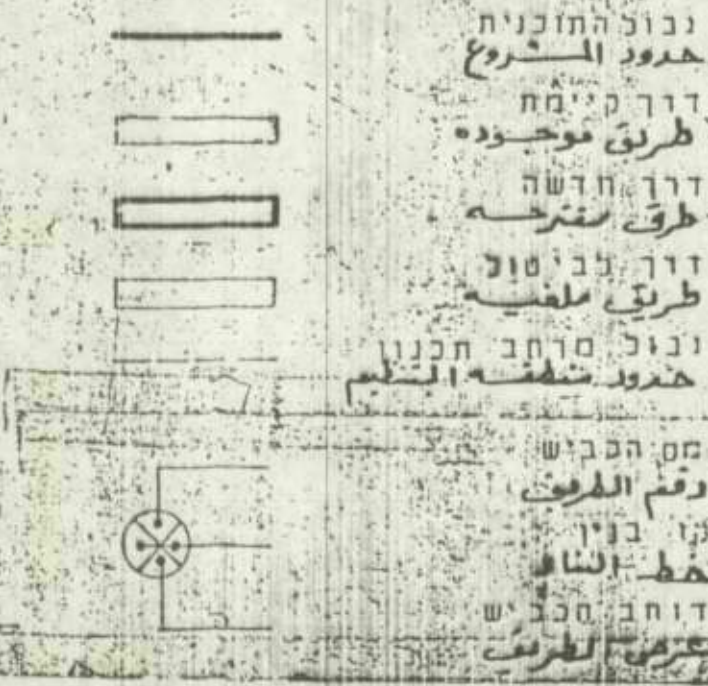 גבול התוכנית
حدود المشروع
דרך קיימת
طريق موجوده
דרך חדשה
طرق مقترحه
דרך לביטול
طريق ملغيه
גבול מרחב תכנון
حدود منطقه التنظيم
מס הכביש
رقم الطريق
קו בנין
خط البناء
רוחב הכביש
عرض الطريق